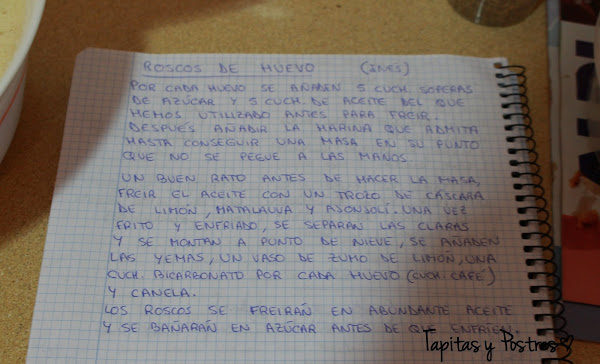 ROSCOS DE HUEVO (INÉS)
POR CADA HUEVO SE AÑADEN 5 CUCH. SOPERAS
DE AZÚCAR Y 5 CUCH. DE ACEITE DEL QUE
HEMOS UTILIZADO ANTES PARA FREIR.
DESPUÉS AÑADIR LA HARINA QUE ADMITA
HASTA CONSEGUIR UNA MASA EN SU PUNTO
QUE NO SE PEGUE A LAS MANOS.
UN BUEN RATO ANTES DE HACER LA MASA,
FREIR EL ACEITE CON UN TROZO DE CÁSCARA
DE LIMÓN, MATALAUVA Y AJONJOLÍ. UNA VEZ
FRITO Y ENFRIADO, SE SEPARAN LAS CLARAS
Y SE MONTAN A PUNTO DE NIEVE, SE AÑADEN
LAS YEMAS, UN VASO DE ZUMO DE LIMÓN, UNA
CUCH. BICARBONATO POR CADA HUEVO (CUCH. CAFÉ)
Y CANELA.
LOS ROSCOS SE FREIRÁN EN ABUNDANTE ACEITE
Y SE BAÑARÁN EN AZÚCAR ANTES DE QUE ENFRIEN.
Tapitas y Postres